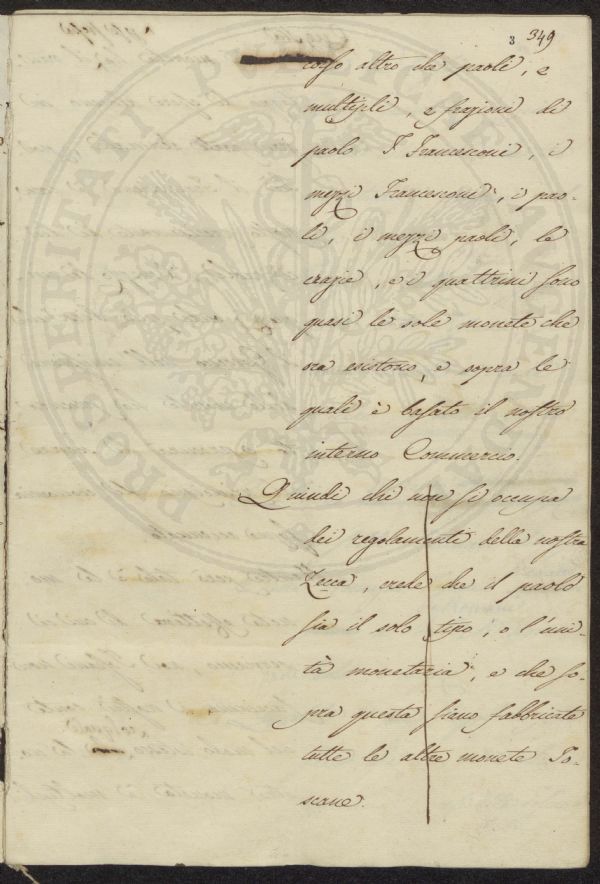 3 349
corso altro che paoli, e
multipli, e frazioni di
paolo I Francesconi, i
mezzi Francesconi, i pao-
li, i mezzi paoli, le
crazie, e i quattrini sono
quasi le sole monete che
ora esistono, e sopra le
quali è basato il nostro
interno Commercio.
Quindi chi non si occupa
dei regolamenti della nostra
Zecca, crede che il paolo
sia il solo tipo, o l'uni-
tà monetaria, e che so-
pra questa siano fabbricate
tutte le altre monete To-
scane.
PROSPERITATI PUBLICAE AUGENDAE